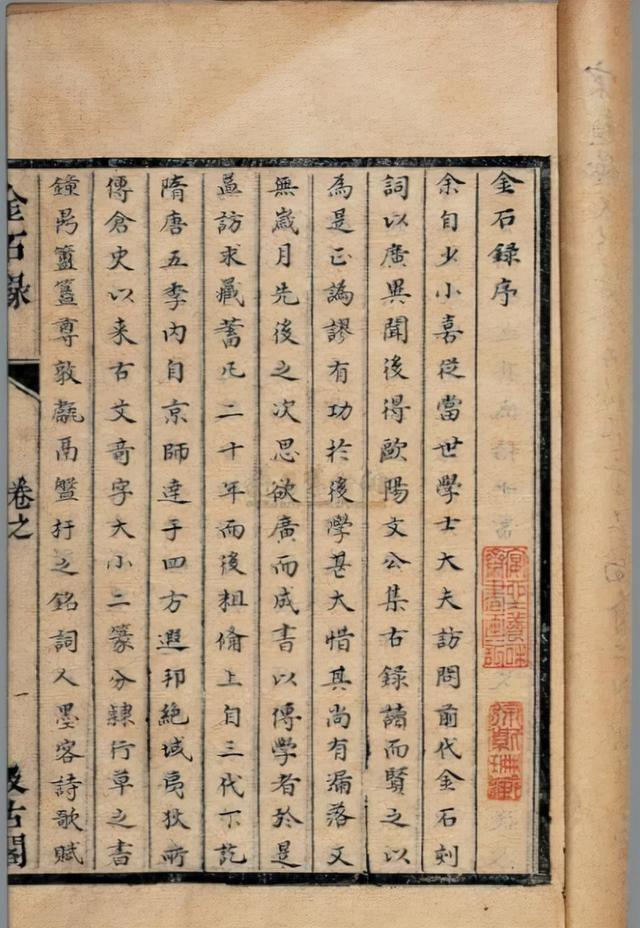 金石録序
余自少小喜從當世學士大夫訪問前代金石刻
詞以廣異聞後得歐陽文公集古録讀而賢之以
為是正譌謬有功於後學甚大惜其尚有漏落又
無歲月先後之次思欲廣而成書以傳學者於是
益訪求藏蓄凡二十年而後粗備上自三代下訖
隋唐五季内自京師達于四方遐邦絶域夷狄所
傳倉史以来古文奇字大小二篆分隸行草之書
鐘鼎簠簋尊敦甗鬲盤杅之銘詞人墨客詩歌賦
金石録
卷之
一
汲古閣